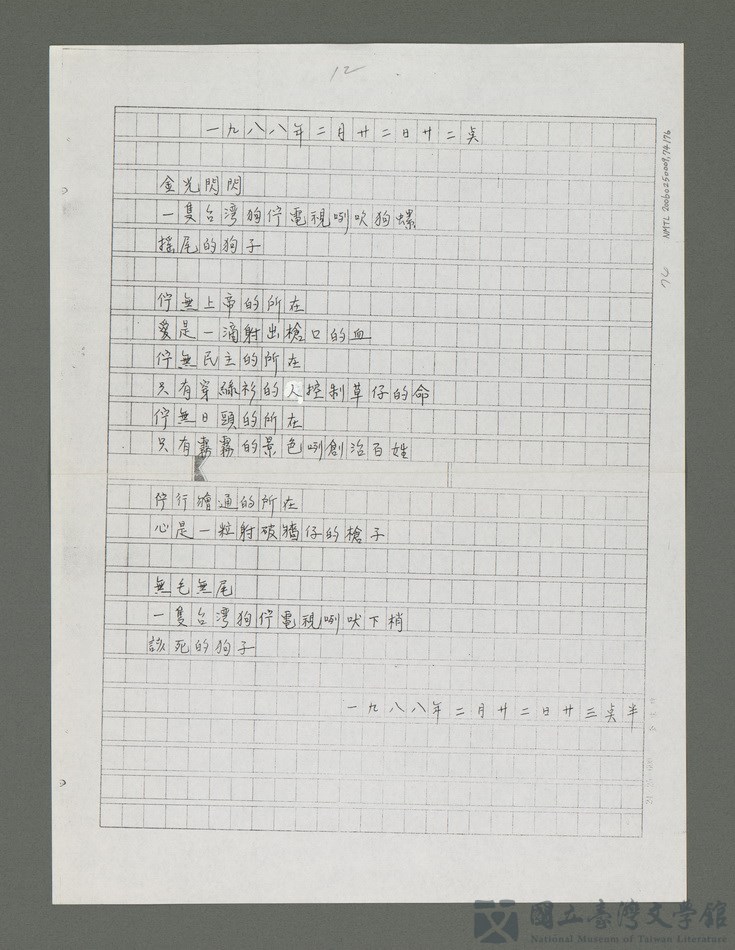 12
一九八八年二月廿二日廿二点
金光閃閃
一隻台湾狗佇電視咧吹狗螺
搖尾的狗子
佇無上帝的所在
愛是一滴射出槍口的血
佇無民主的所在
只有穿綠衫的人控制草仔的命
佇無日頭的所在
只有霧霧的景色咧創治百姓
佇行𣍐通的所在
心是一粒射破牆仔的槍子
無毛無尾
一隻台湾狗佇電視咧吠下梢
該死的狗子
一九八八年二月廿二日廿三点半
NMTL 20060250009,74/76
76
國立臺灣文學館
National Museum of Taiwan Literature